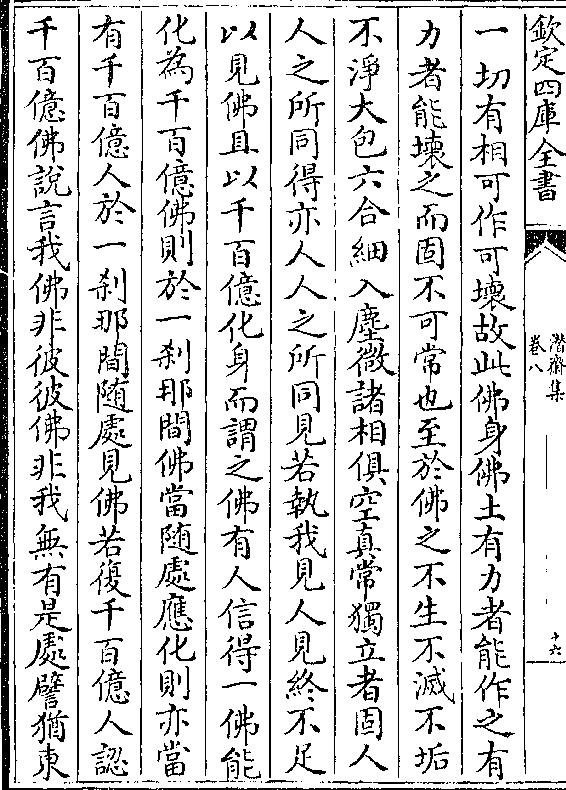 欽定四庫全書
潛齋集
卷八
十六
一切有相可作可壞故此佛身佛土有力者能作之有
力者能壞之而固不可常也至於佛之不生不滅不垢
不淨大包六合細入塵微諸相俱空真常獨立者固人
人之所同得亦人人之所同見若執我見人見終不足
以見佛且以千百億化身而謂之佛有人信得一佛能
化為千百億佛則於一刹那間佛當随處應化則亦當
有千百億人於一刹那間随處見佛若復千百億人認
千百億佛說言我佛非彼彼佛非我無有是處譬猶東